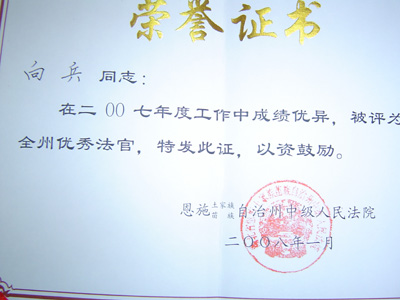 荣誉证书
向兵同志：
在二00七年度工作中成绩优异，被评为
全州优秀法官，特发此证，以资鼓励。
恩施土家族苗族自治州中级人民法院
二〇〇八年一月